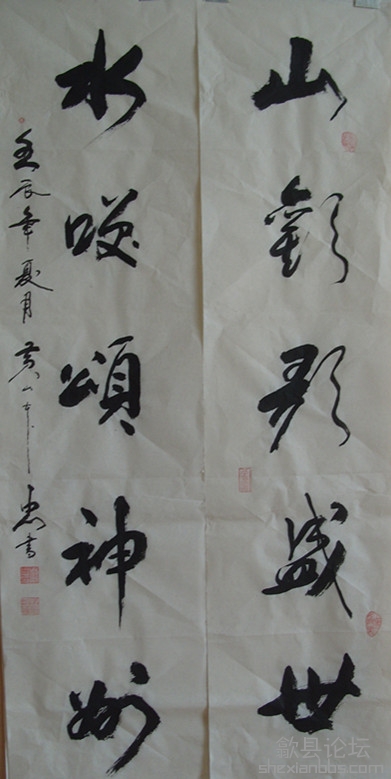 山歡歌盛世
水咲頌神州
壬辰年夏月黄山書
歙县论坛
shexianbbs.com